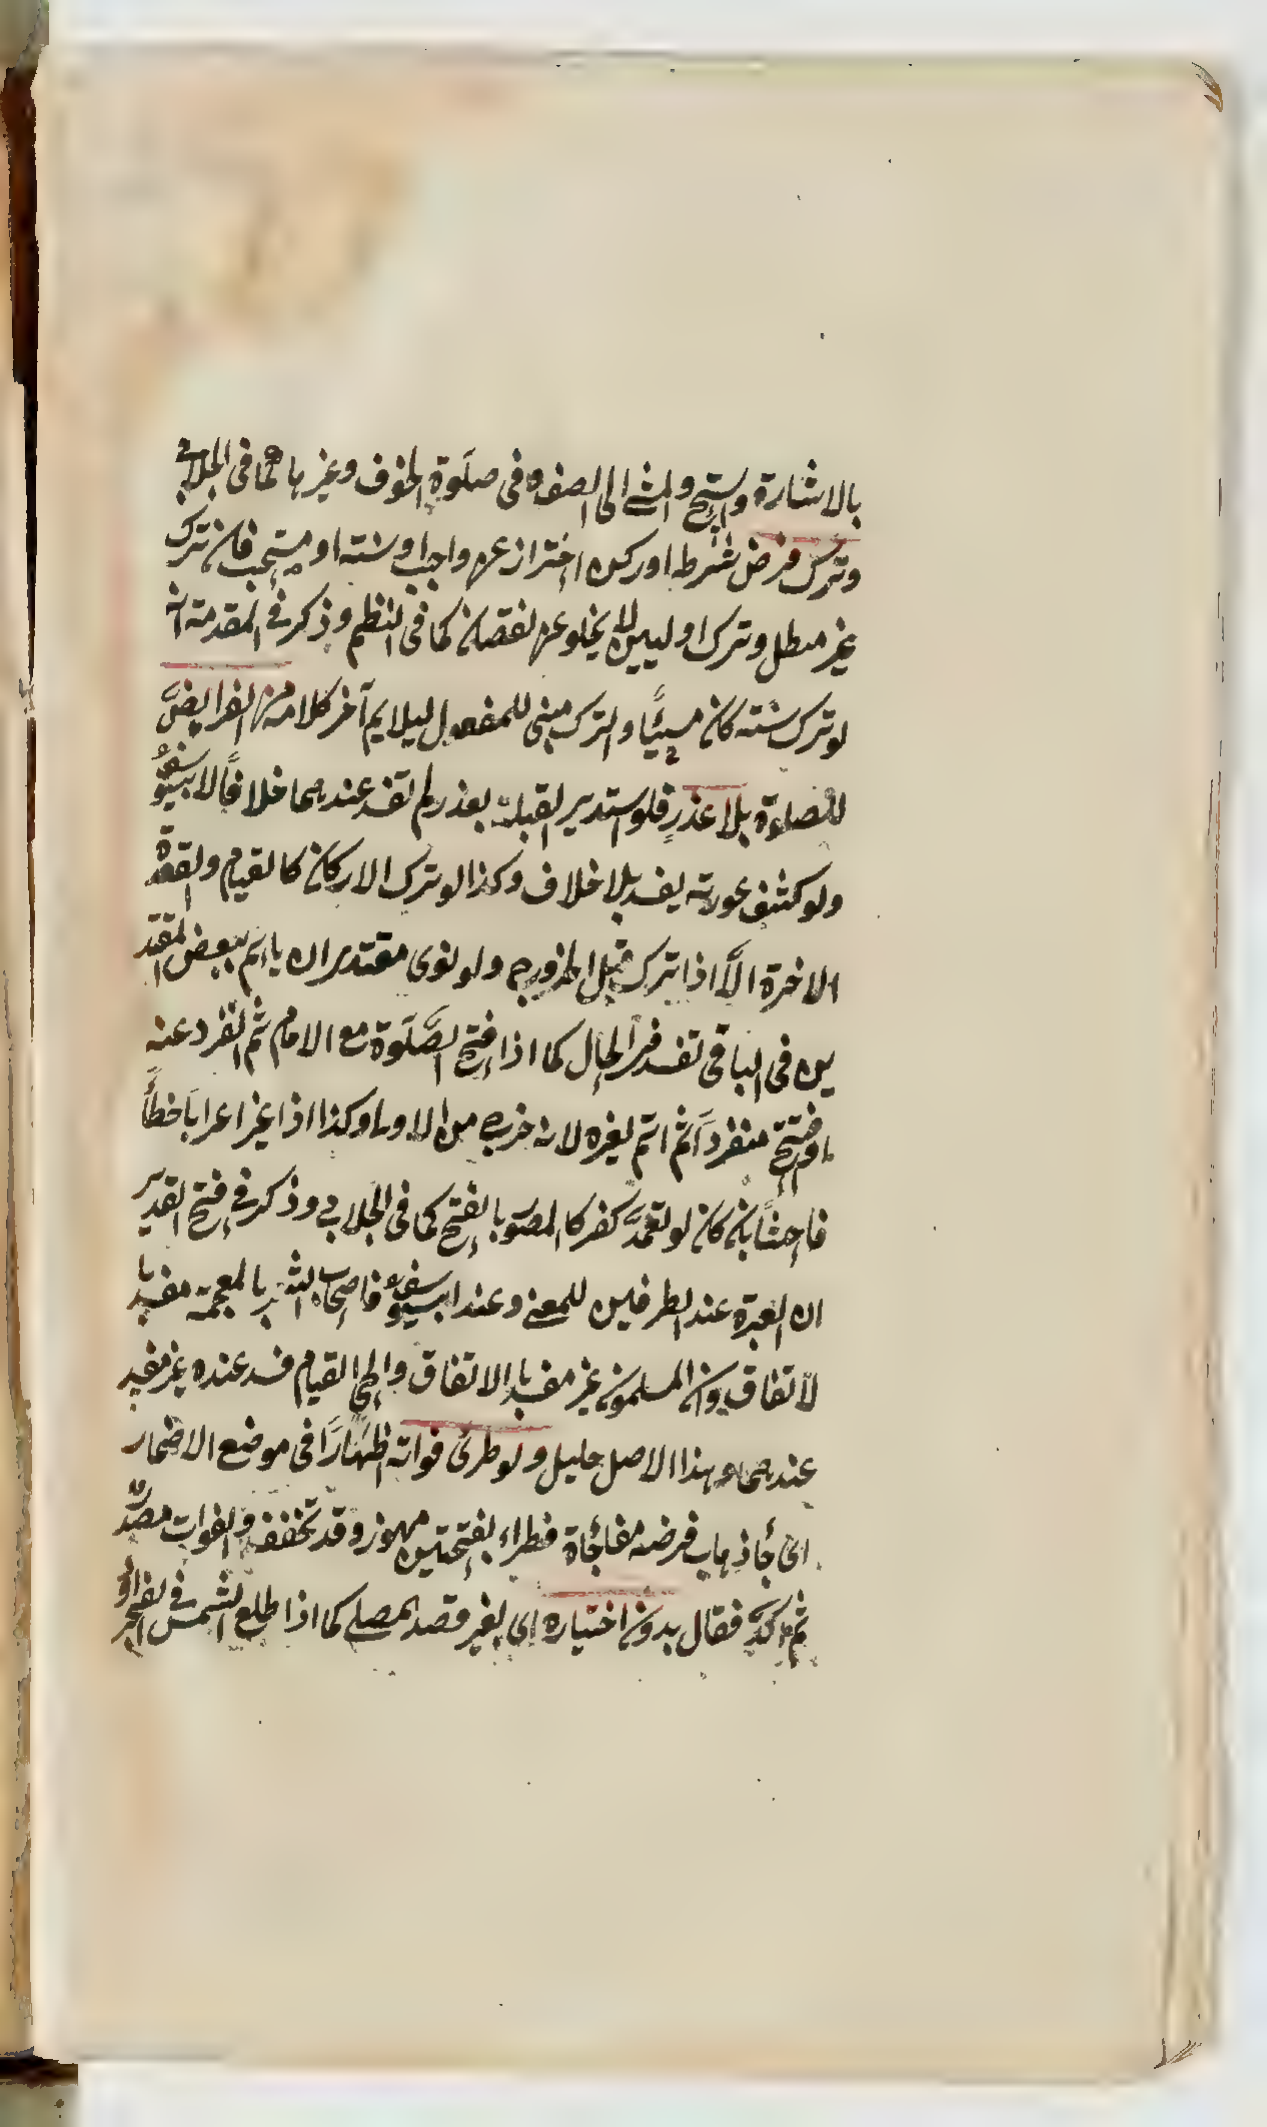 بالاشارة والتسبيح والمشي الى الصف وفي صلوة الخوف وغيرها كما في الجلابي
وترك فرض شرط او ركن احتراز عن واجب او سنة او مستحب فان ترك
غير مبطل وترك اوليين لا يخلو عن نقصان كما في النظم وذكر في المقدمة انه
لو ترك سنة كان مسيئا والترك مبني للمفعول ليلايم آخر كلامه من الفرايض
للصلوة بلا عذر فلو استدبر القبلة بعذر لم تفسد عندهما خلافا لابي يوسف
ولو كشف عورته يفسد بلا خلاف وكذا لو ترك الاركان كالقيام والقعدة
الاخرة الا اذا ترك قبل الخروج ولو نوى مقتد ان يأتم ببعض المقتد
ين في الباقي تفسد في الحال كما اذا افتتح الصلوة مع الامام ثم انفرد عنه
او افتتح منفردا ثم ائتم لغيره لانه خرج من الاولى وكذا اذا غير اعرابا خطأ
فاحشا بان كان لو تعمد كفر كالمصور بالفتح كما في الجلابي وذكر في فتح القدير
ان العبرة عند الطرفين للمعنى وعند ابي يوسف فاصحاب الشعير بالمعجمة مفسد با
لاتفاق وان المسلمون غير مفسد بالاتفاق والحي القيام فسد عنده غير مفسد
عندهما وهذا الاصل جليل ولو طرئ فواته اظهارا في موضع الاضمار
اي فجأ ذهاب فرضه مفاجأة فطراء بفتحتين مهموز وقد تخفف والفوات مصدر
ثم اكد فقال بدون اختياره اي بغير قصد المصلي كما اذا طلع الشمس في الفجر او